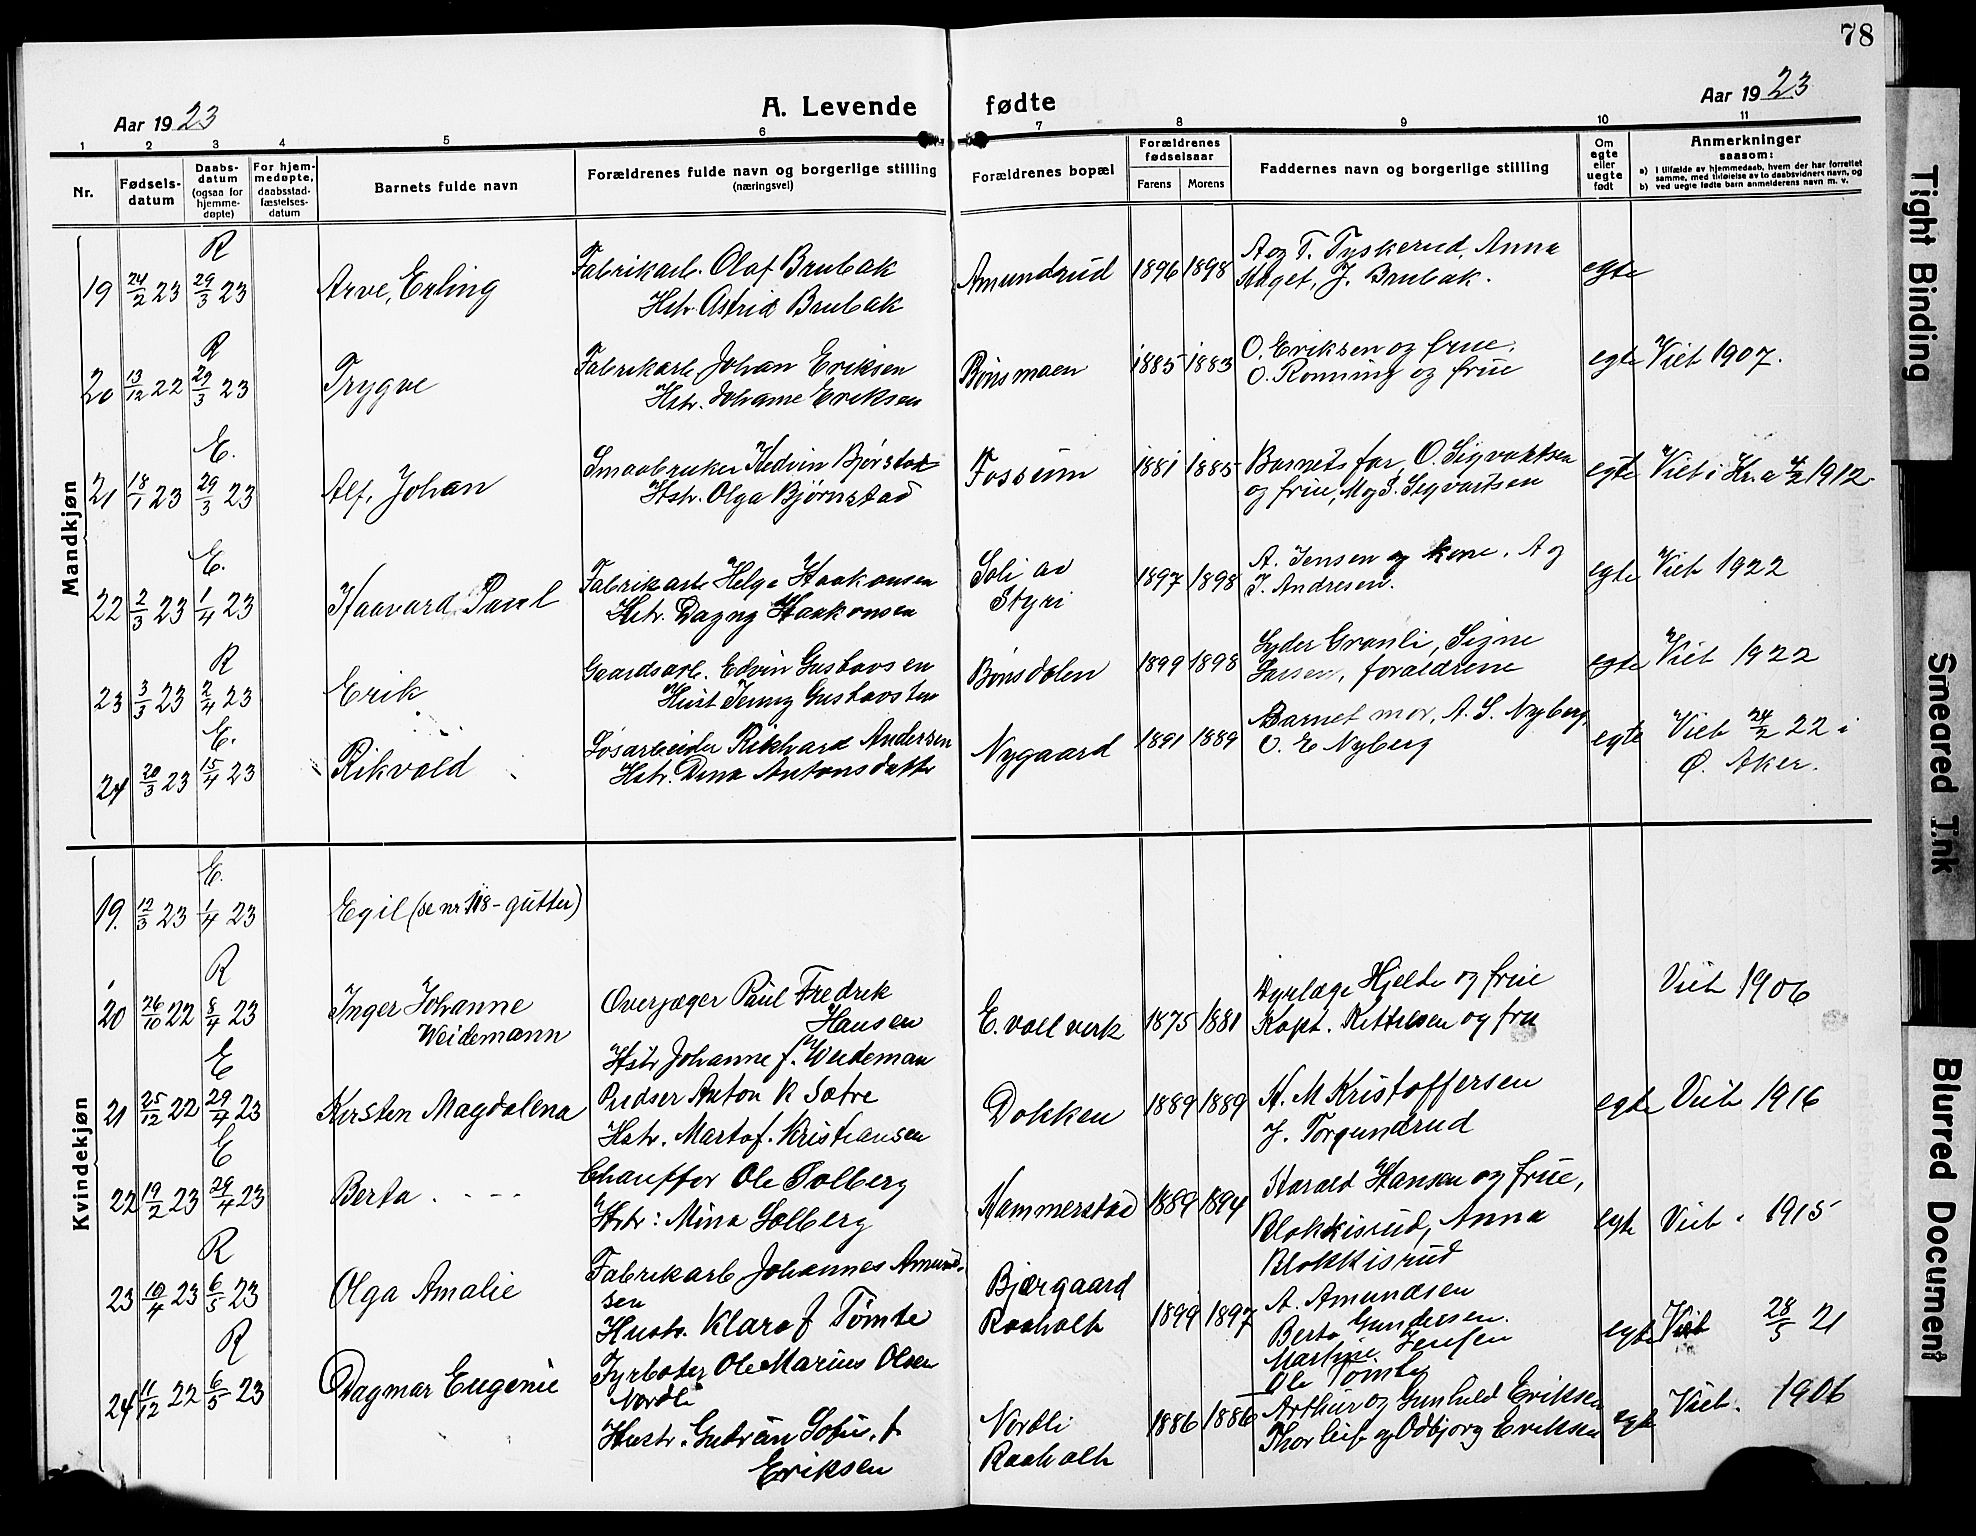 78
Aar 1923
A. Levende fødte
Aar 1923
1 2 3 4 5 6 7 8 9 10 11
Nr.
Fødsels-
datum
Daabs-
datum
(ogsaa for
hjemme-
døpte)
For hjem-
medøpte,
daabsstad-
fæstelses-
datum
Barnets fulde navn
Forældrenes fulde navn og borgerlige stilling
(næringsvei)
Forældrenes bopæl
Forældrenes
fødselsaar
Farens Morens
Faddernes navn og borgerlige stilling
Om
egte
eller
uegte
født
Anmerkninger
saasom:
a) I tilfælde av hjemmedaab, hvem der har forrettet
samme, med tilføielse av to daabsvidners navn, og
b) ved uegte fødte barn anmelderens navn m. v.
Mandkjøn
R
19 24/2 23 29/3 23 Arve, Erling
Fabrikarb. Olaf Brubak
Hstr. Astrid Brubak
Amundrud 1896 1898
A og T. Tyskerud, Anna
Haget, J. Brubak.
egte
R
20 13/12 22 29/3 23 Trygve
Fabrikarb. Johan Eriksen
Hstr. Johanne Eriksen
Bønsmoen 1885 1883
O. Eriksen og frue.
O. Ronning og frue
egte Viet 1907.
E.
21 18/1 23 29/3 23 Alf, Johan
Smaabruker Hedvin Bjørstad
Hstr. Olga Bjørnstad
Fossum 1881 1885
Barnets far, O. Sigvartsen
og frue, M og S. Sigvartsen
egte Viet i Kr.a 1912.
E.
22 2/3 23 1/4 23 Haavard Paul
Fabrikarb Helge Haakonsen
Hstr. Dagny Haakonsen
Soli av
Styri
1897 1898
A. Jensen og kone. A og
J. Andresen.
egte Viet 1922
R
23 3/3 23 2/4 23 Erik
Gaardsarb. Edvin Gustavsen
Hust Jenny Gustavsen
Bønsdalen 1899 1898
Lyder Granli, Signe
Larsen, foraldrene
egte Viet 1922
E.
24 20/3 23 15/4 23 Rikvald
Løsarbeider Rikhard Andersen
Hstr. Dina Antonsdatter
Nygaard 1891 1889
Barnet mor, A. S. Nyberg,
O. E Nyberg
egte Viet 24/2 22 i
Ø. Aker.
Kvindekjøn
E.
19. 12/3 23 1/4 23 Egil (se nr 18 - gutter)
R
20 26/10 22 8/4 23 Inger Johanne
Weidemann
Overjæger Paul Fredrik
Hansen
Hstr Johanne f. Weideman
E. voll verk 1875 1881
Dyrlæge Hjelde og frue
Kapt. Kittilsen og fru
Viet 1906
E
21 25/12 22 29/4 23 Kirsten Magdalena
Pudser Anton R Sætre
Hstr. Marta f. Kristiansen
Dokken 1889 1889
H. M Kristoffersen
J. Torgundrud
egte Viet 1916
E
22 19/2 23 29/4 23 Berta
Chauffør Ole Solberg
Hstr: Mina Solberg
Hammerstad 1889 1894
Harald Hansen og frue,
Blokkisrud, Anna
Blokkisrud
egte Viet 1915
R
23 10/4 23 6/5 23 Olga Amalie
Fabrikarb Johannes Amund-
sen
Hustr. Klara f Tømte
Bjærgaard
Raaholt
1899 1897
A. Amundsen
Berta Gundersen.
Martine Jensen
Ole Tømte
egte Viet 28/5 21
R
24 11/12 22 6/5 23 Dagmar Eugenie
Fyrbøder Ole Marius Olsen
Nordli
Hustr. Gudrun Sofie. f
Eriksen
Nordli
Raaholt
1886 1886
Arthur og Gunhild Eriksen
Thorleif og Odbjorg Eriksen
egte Viet. 1906
Tight Binding
Smeared Ink
Blurred Document